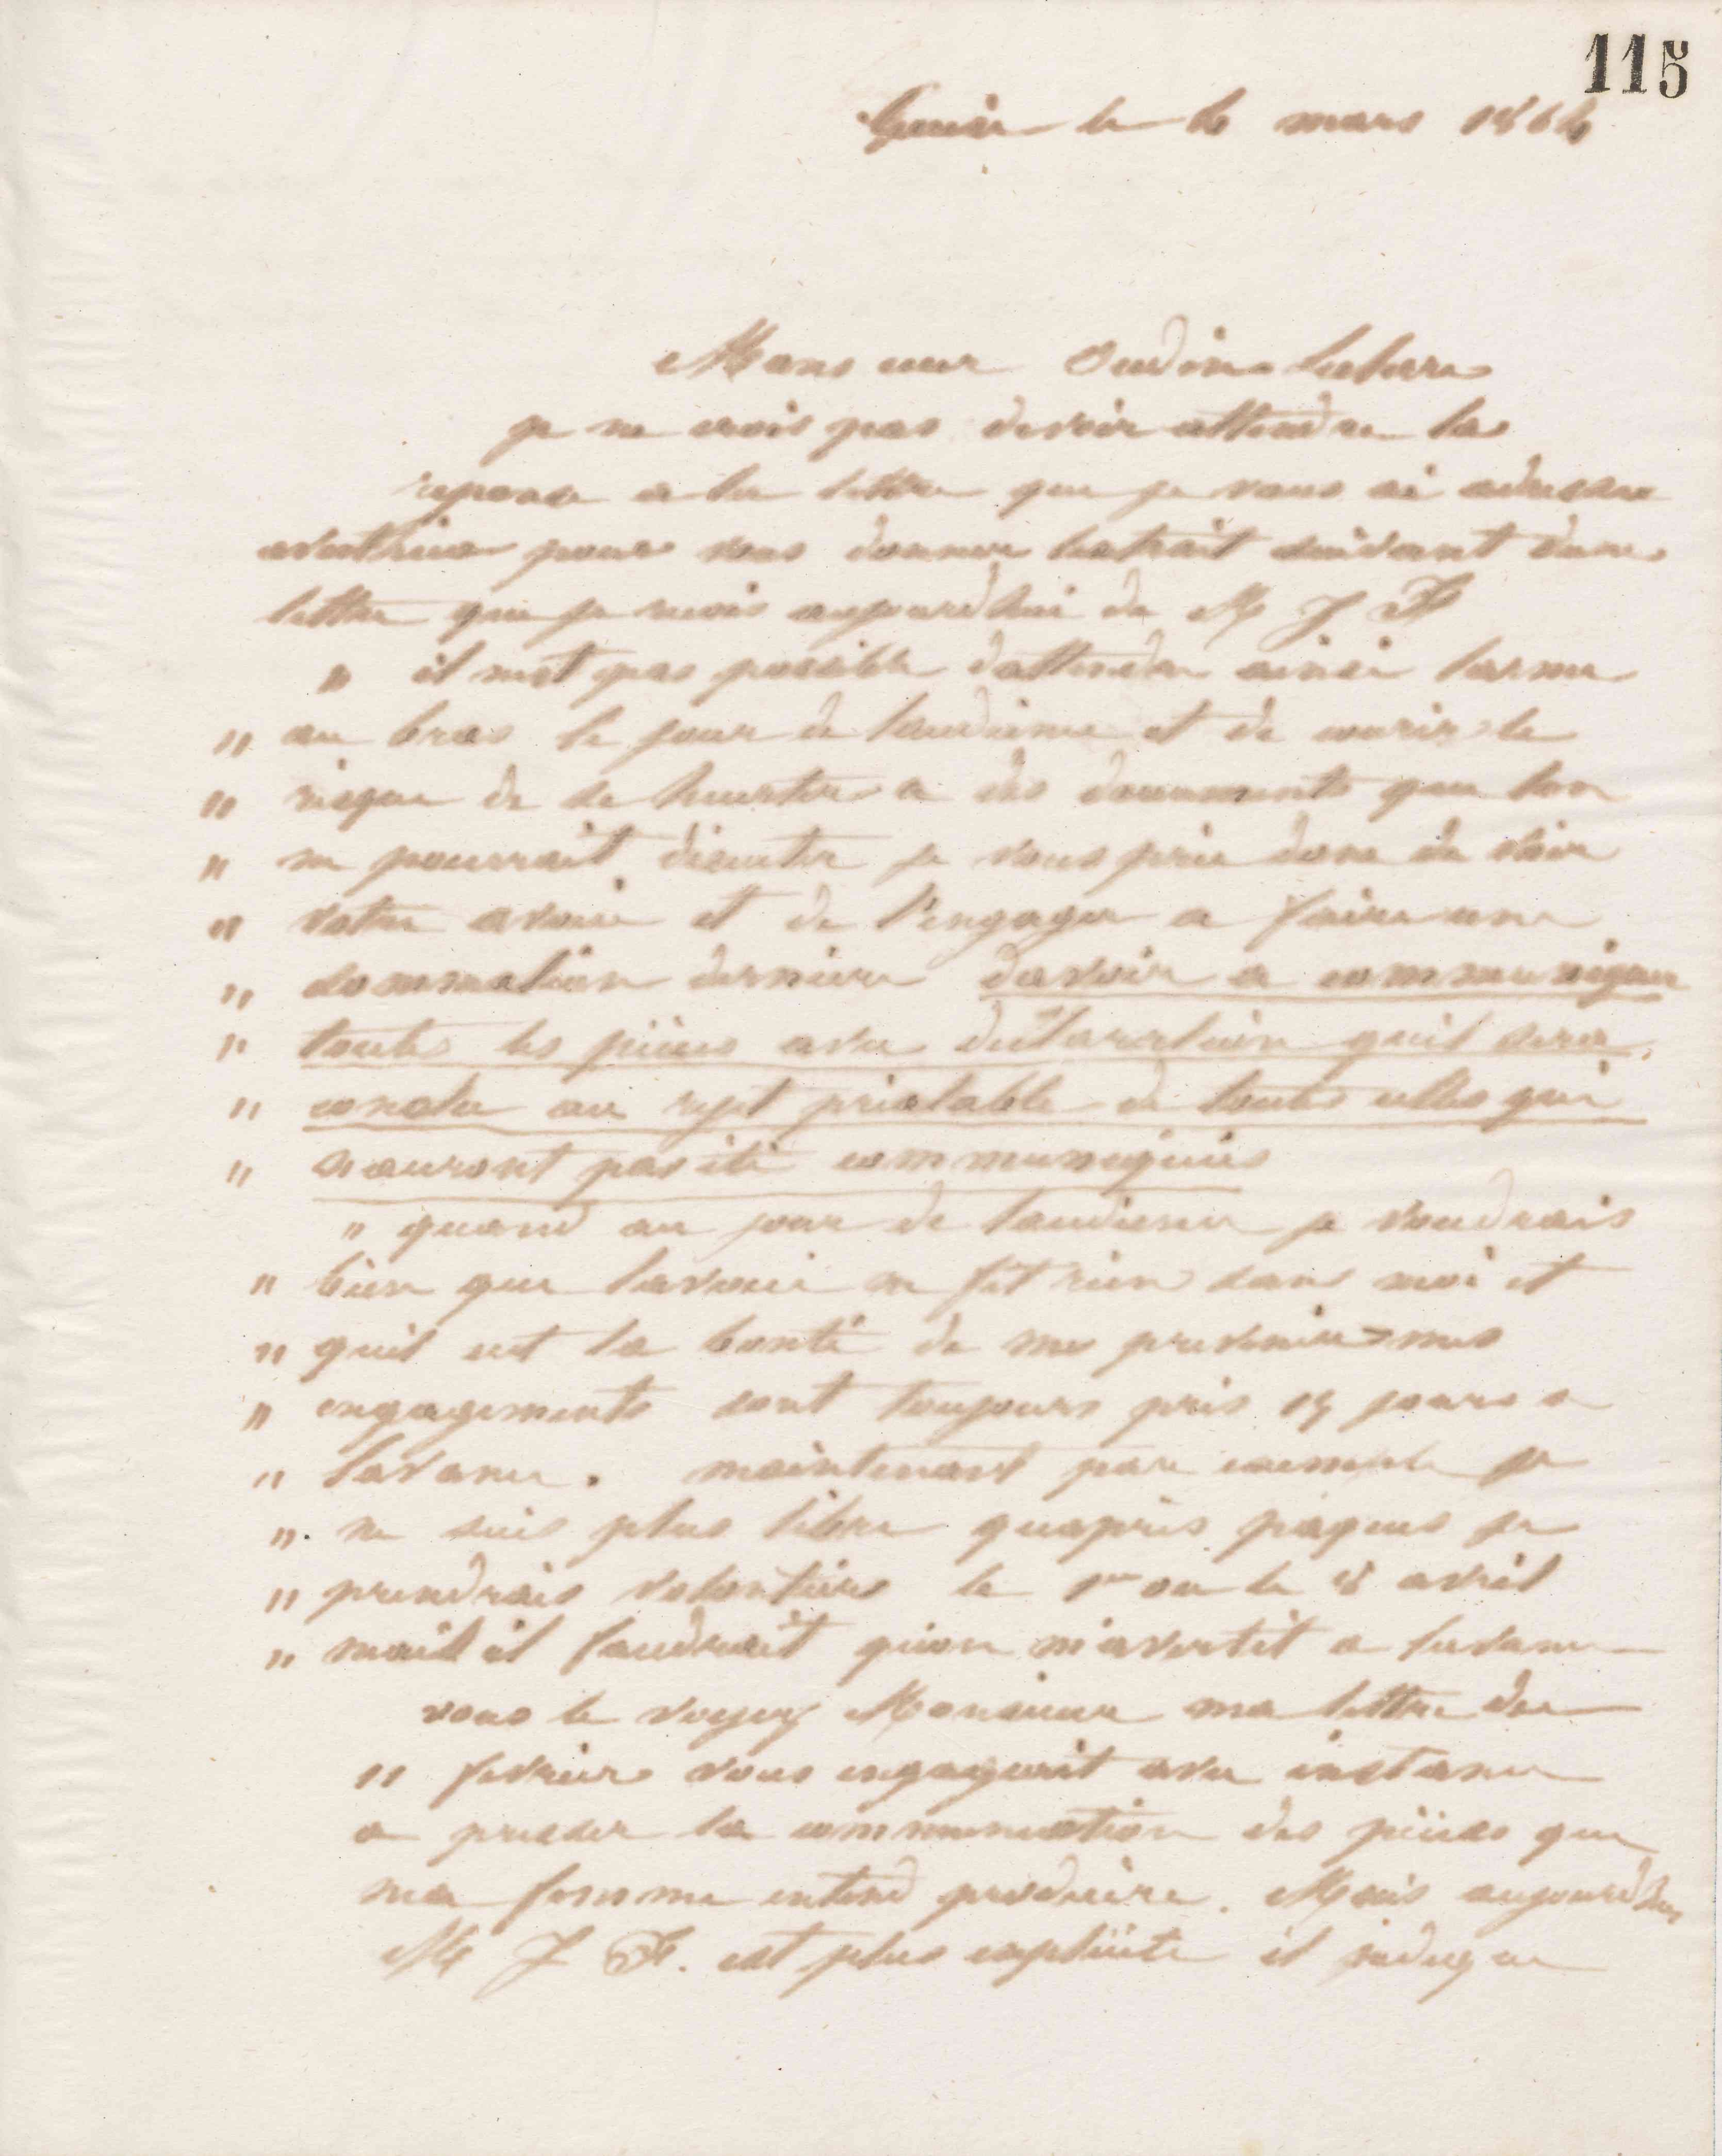 115
Guise le 6 mars 1864
Monsieur Oudin Leclere
je ne crois pas devoir attendre la
reponse a la lettre que je vous ai adressée
avanthier pour vous donner lextrait suivant dune
lettre que je recois aujourdhui de M J F
" il nest pas possible dattendre ainsi larme
" au bras le jour de laudience et de courir le
" risque de se heurter a des documents que lon
" ne pourrait discuter je vous prie donc de voir
" votre avoué et de l'engager a faire une
" sommation derniere davoir a communiquer
" toutes les pièces avec déclaration quil sera
" conclu au rejet préalable de toutes celles qui
" nauront pas été communiquées
" quand au jour de laudience je voudrais
" bien que lavoué ne fit rien sans moi et
" quil eut la bonté de me prevenir mes
" engagements sont toujours pris 15 jours a
" lavance. maintenant par exemple je
" ne suis plus libre quapres paques je
" prendrais volontiers le 1er ou le 8 avril
" mais il faudrait quon m'avertit a lavance
vous le voyez Monsieur ma lettre du
11 fevrier vous engageait avec instance
a presser la communication des pièces que
ma femme entend produire. Mais aujourdhui
M J F. est plus explicite il indique